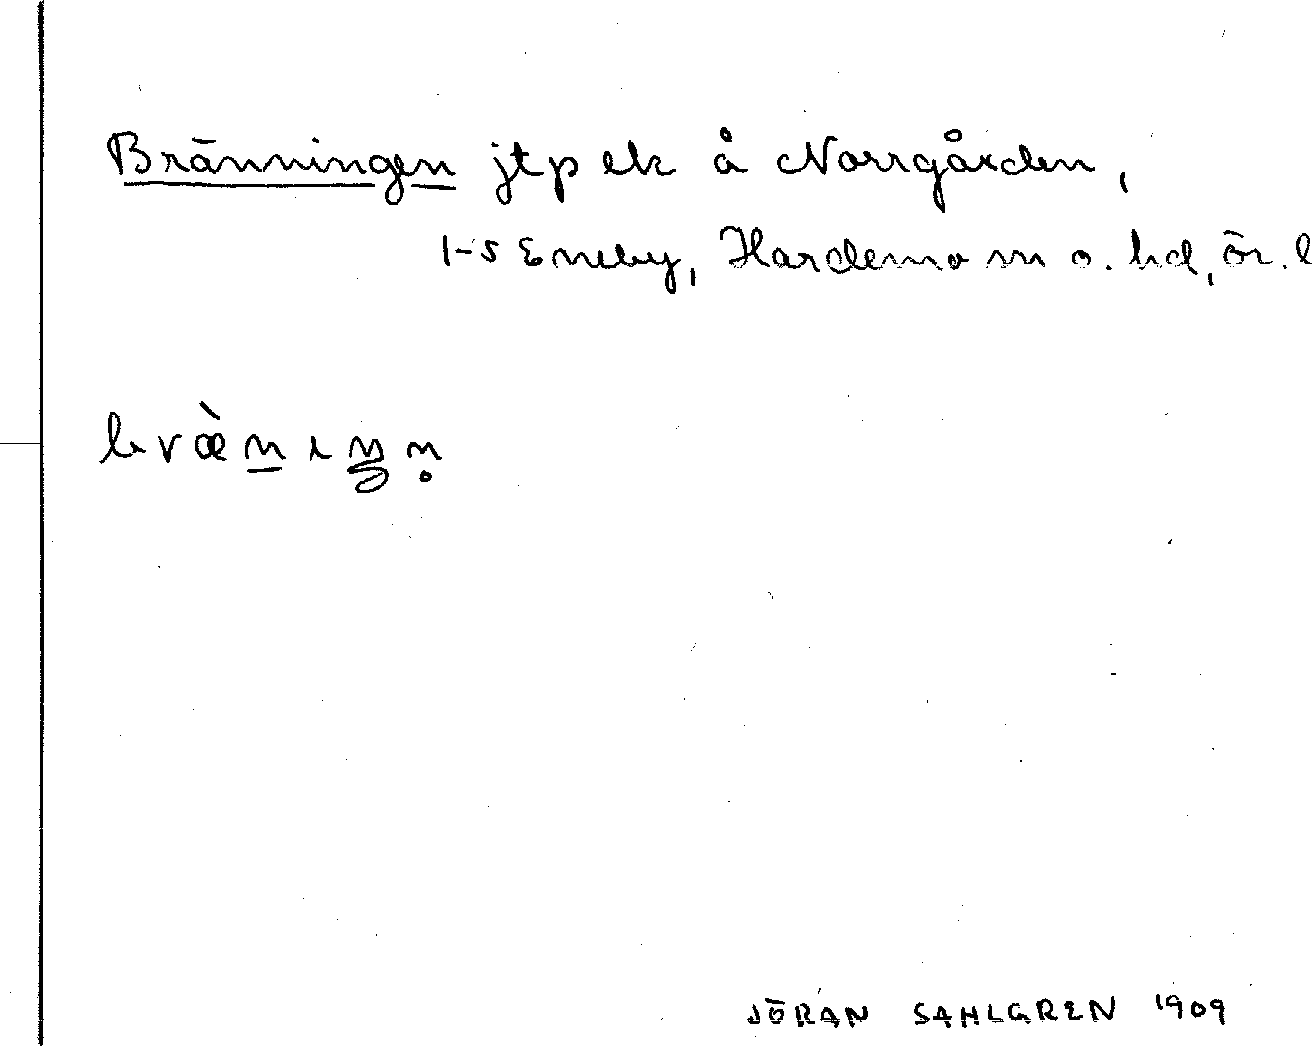 Bränningen jtp ek å Norrgården,
1-5 Eneby, Hardemo sn o. hd, ör. l
bræ̀nıŋn̥
JÖRAN SAHLGREN 1909